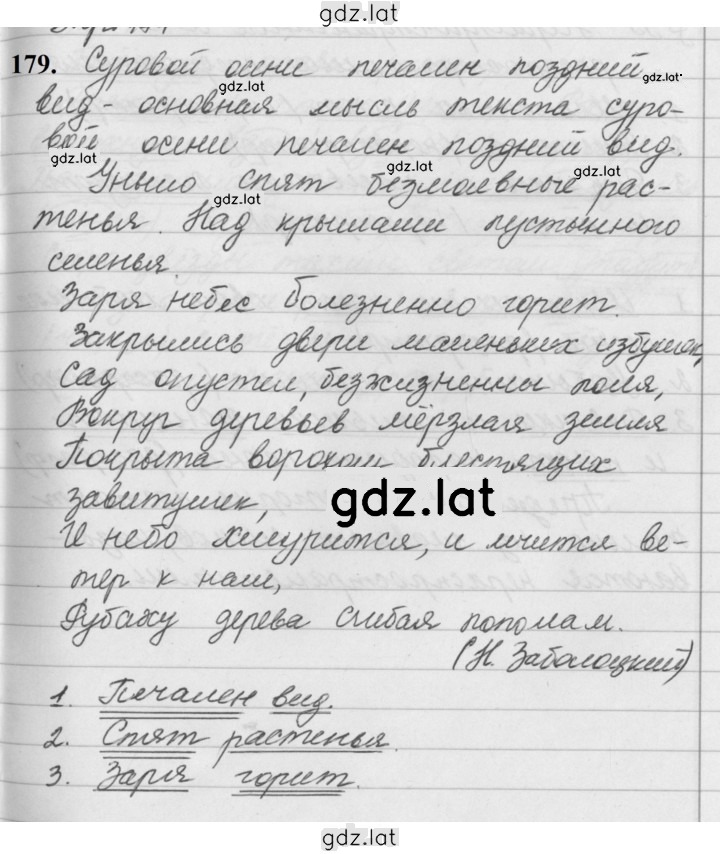 gdz.lat
179. Суровой осени печален поздний
gdz.lat
gdz.lat
вид - основная мысль текста суро-
вой осени печален поздний вид.
gdz.lat
gdz.lat
Уныло спят безмолвные рас-
gdz.lat
тенья. Над крышами пустынного
селенья
Заря небес болезненно горит.
Закрылись двери маленьких избушек,
Сад опустел, безжизненны поля,
Вокруг деревьев мёрзлая земля
Покрыта ворохом блестящих
завитушек,
gdz.lat
И небо хмурится, и мчится ве-
тер к нам,
Рубаху дерева сгибая пополам.
(Н. Заболоцкий)
1. Печален вид.
2. Спят растенья.
3. Заря горит.
gdz.lat